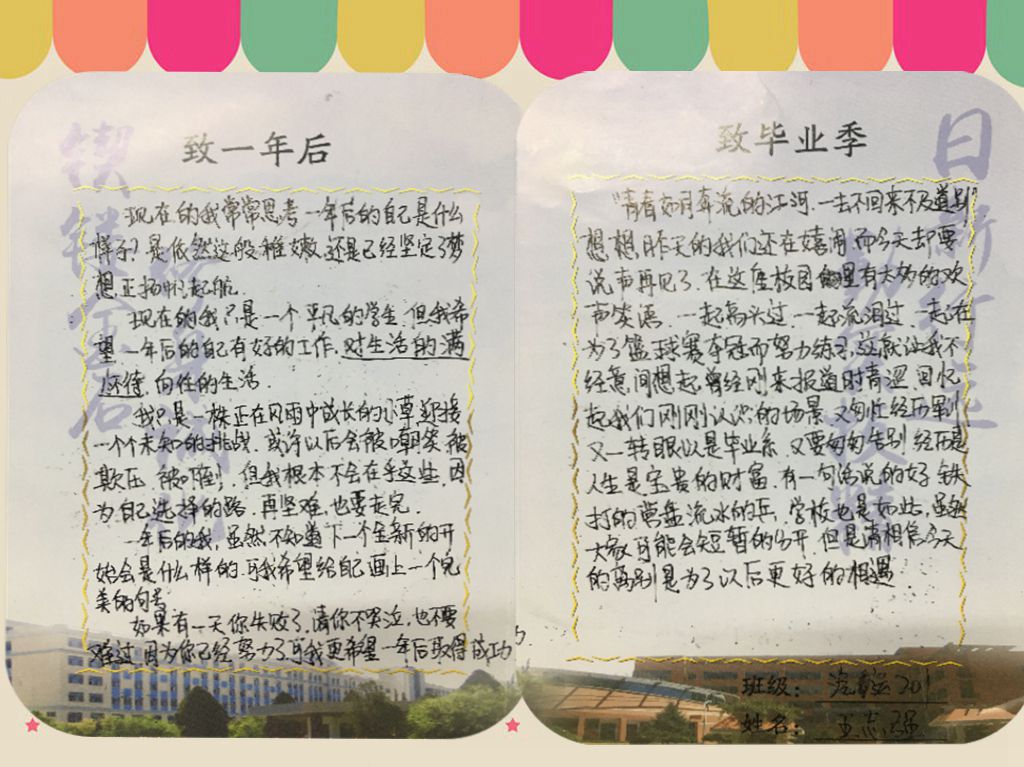 致一年后
现在的我常常思考一年后的自己是什么
样子?是依然这般稚嫩,还是已经坚定了梦
想正扬帆起航.
现在的我只是一个平凡的学生.但我希
望一年后的自己有好的工作,对生活的满
怀
向往的生活.
我只是一株正在风雨中成长的小草迎接
一个个未知的挑战.或许以后会被嘲笑被
欺压、被
但我根本不会在乎这些,因
为自己选择的路.再坚难,也要走完.
一年后的我,虽然不知道下一个全新的开
始会是什么样的.可我希望给自己画上一个完
美的句号
如果有一天你失败了,请你不哭泣,也不要
难过,因为你已经努力了可我更希望一年后取得成功
锲镂金石
致毕业季
"青春如同奔流的江河.一去不回来不及道别"
想想,昨天的我们还在嬉闹而今天却要
说声再见了.在这座校园里有太多的欢
声笑语.一起高兴过.一起流泪过一起在
为了篮球赛夺冠而努力练习,这就让我不
经意间想起曾经刚来报道时青涩回忆
起我们刚刚认识的场景又匆忙经历军训
又一转眼以是毕业系又要匆匆告别经历是
人生是宝贵的财富.有一句话说的好铁
打的营盘流水的兵,学校也是如此,虽然
大家可能会短暂的分开.但是请相信今天
的离别是为了以后更好的相遇.
日新
班级:
201
姓名:王志强